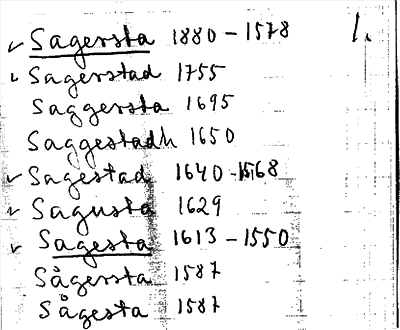 ✓ Sagersta 1880 – 1578 1.
✓ Sagerstad 1755
Saggersta 1695
Saggestadh 1650
✓ Sagestad 1640 – 1568
✓ Sagusta 1629
✓ Sagesta 1613 – 1550
Sågersta 1587
Sågesta 1587